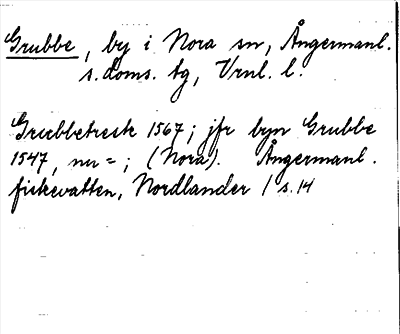 Grubbe, by i Nora sn, Ångermanl.
s. doms. tg, Vrnl. l.
Grubbetresk 1567; jfr byn Grubbe
1547, nu =; (Nora). Ångermanl.
fiskevatten, Nordlander 1 s. 14